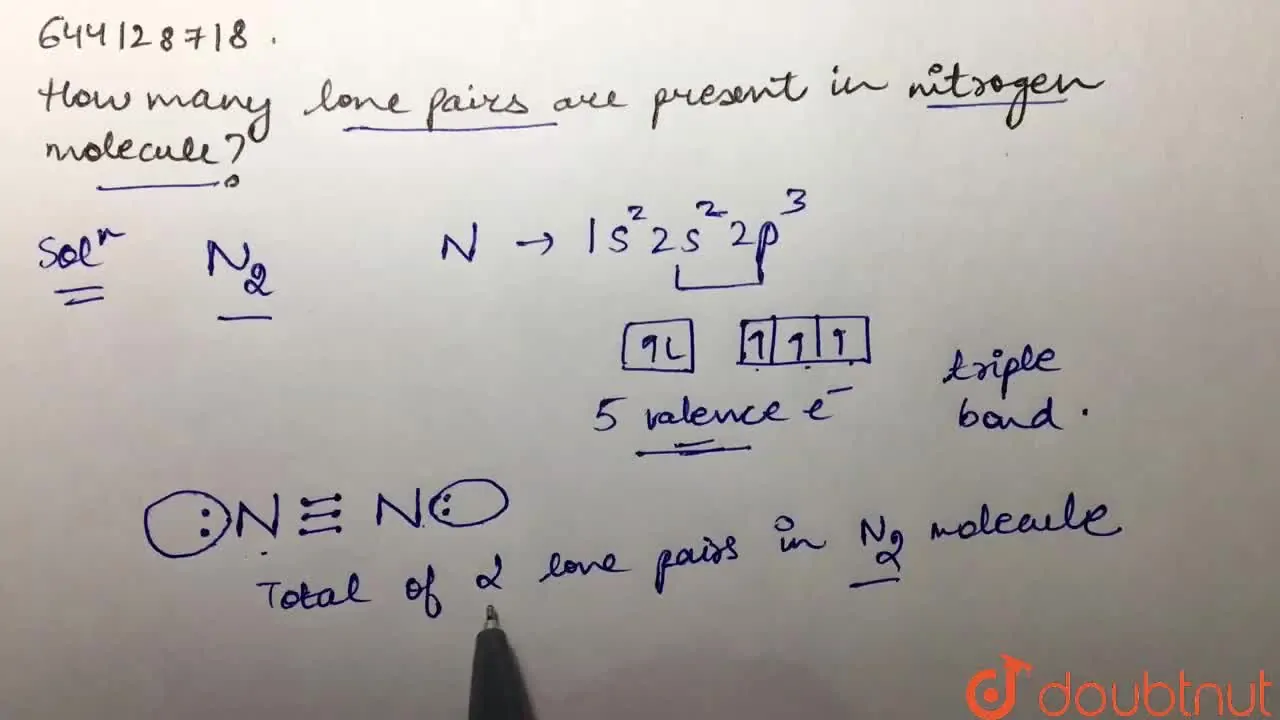 644128718.
How many lone pairs are present in nitrogen
molecule?
Solⁿ N₂ N → 1s² 2s² 2p³
1L 1 1 1
triple
5 valence e⁻ bond.
:N ≡ N:
Total of 2 lone pairs in N₂ molecule
doubtnut